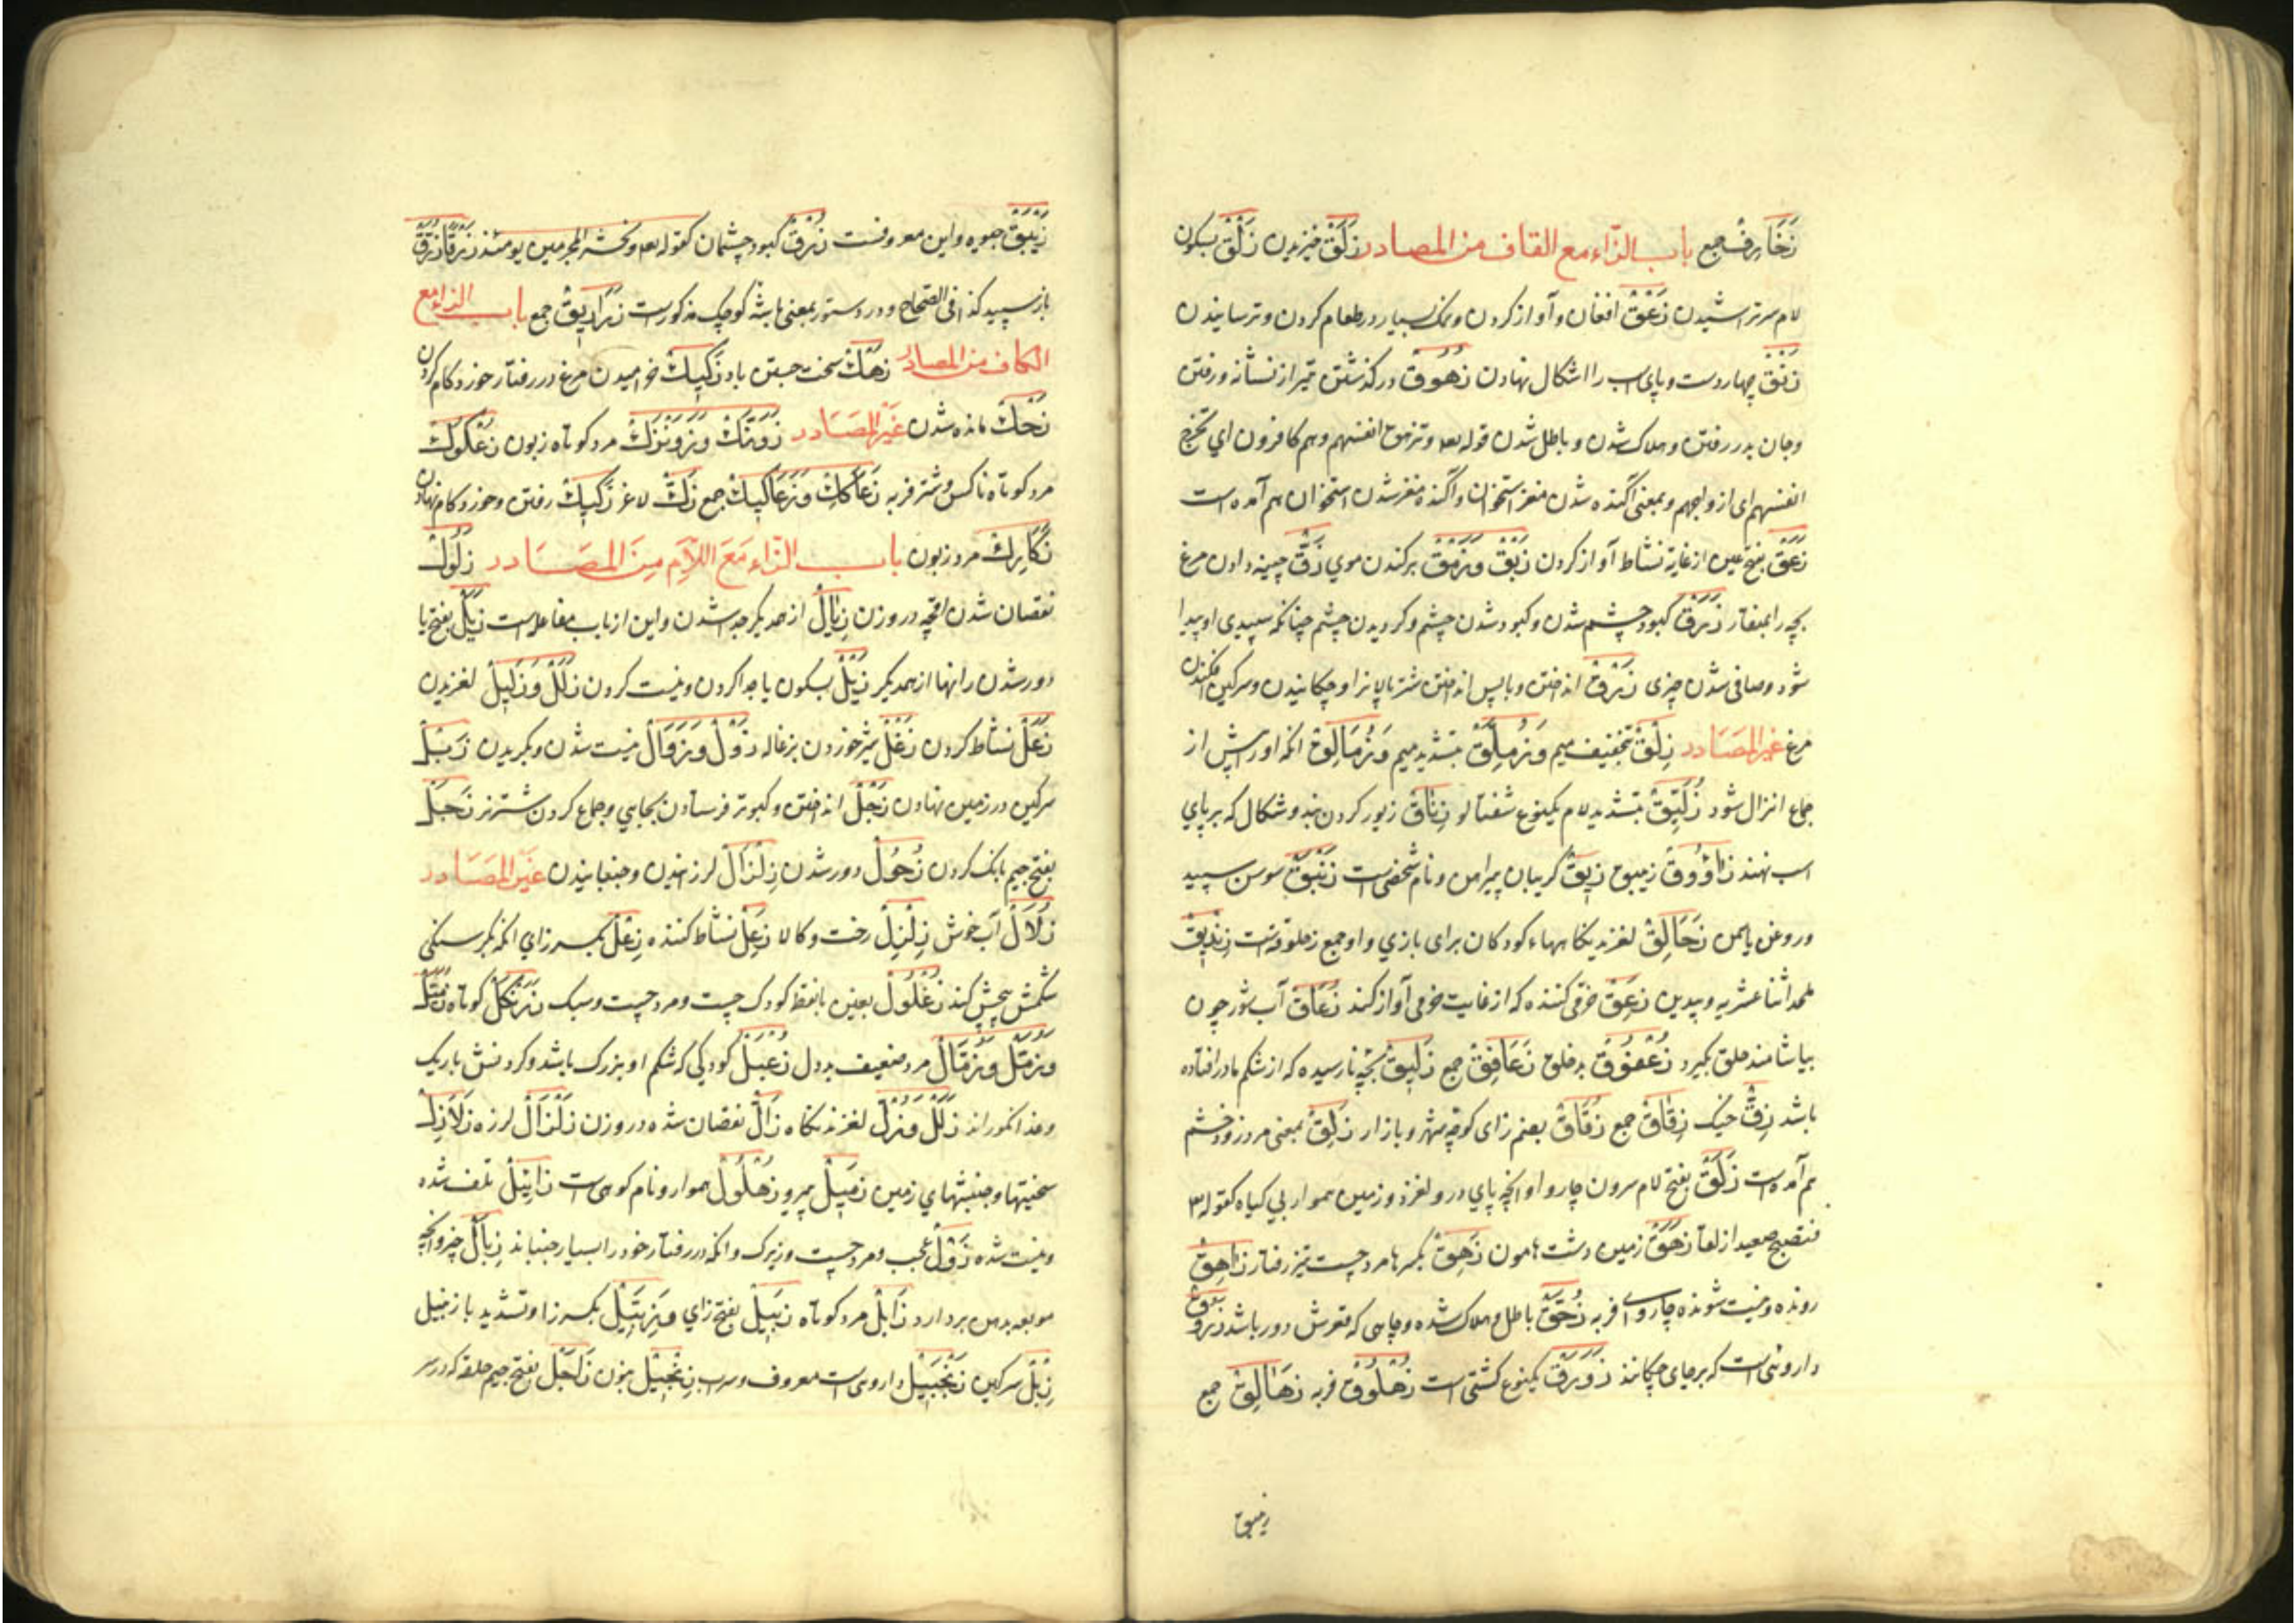 زَخَارِفُ جمع باب الزّاء مع القاف من المصادر زَلَقْ خیزیدن زَلْقْ بسکون
لام سر تراشیدن زَعْقْ افغان و آواز کردن و نمک بسیار در طعام کردن و ترسانیدن
زَنْقْ چهار دست و پای اسب را اشکال نهادن زُهُوقْ در گذشتن تیر از نشانه و رفتن
و جان بدر رفتن و هلاک شدن و باطل شدن قوله تعه وتزهق انفسهم وهم کافرون ای تخرج
انفسهم ای ازواجهم و بمعنی آگنده شدن مغز استخوان و آگنده مغز شدن استخوان هم آمده است
زَعَقْ بفتح عین از غایة نشاط آواز کردن زَبْقْ وَزَمْقْ برکندن موی زَقّْ چینه دادن مرغ
بچه را بمنقار زَرَقْ کبود چشم شدن و کبود شدن چشم و گردیدن چشم چنانکه سپیدی او پیدا
شود و صافی شدن چیزی زَرْقْ انداختن و باپس انداختن شتر پالانرا و چکانیدن و سرگین افکندن
مرغ غیر المصادر زَمِلَقْ بتخفیف میم وَزُمَّلِقْ بتشدید میم وَزُمَالِقْ آنکه او را پیش از
جماع انزال شود زُلَّیْقْ بتشدید لام یکنوع شفتالو زِنَاقْ زیور گردن بند و شکال که بر پای
اسب نهند زَاوُوقْ زیبق زِیقْ گریبان پیراهن و نام شخصی است زَنْبَقْ سوسن سپید
و روغن یاسمن زَحَالِقْ لغزیدنگاهها کودکان برای بازی و او جمع زحلوقه است زِنْدِیقْ
ملحد اثنا عشریه و بیدین زَعِقْ خرقی کننده که از غایت خرمی آواز کند زُعَاقْ آب شور چون
بیاشامند حلق بگیرد زُعْفُوقْ بد خلق زَعَافِقْ جمع زَلِیقْ بچه نارسیده که از شکم مادر افتاده
باشد زِقّْ خیک زِقَاقْ جمع زُقَاقْ بضم زای کوچه شهر و بازار زَلِقْ بمعنی مرد زود خشم
هم آمده است زَلَقْ بفتح لام سرون چاروا و آنچه پای در و لغزد و زمین هموار بی گیاه کقوله
فتصبح صعیدا زلقا زَهَقْ زمین دشت هامون زَهِقْ بکسر ها مرد چست تیز رفتار زَاهِقْ
رونده و نیست شونده چاروای فربه زُهُقْ باطل و هلاک شده و چاهی که قعرش دور باشد
داروئی است که بر جای چکانند زَوْرَقْ یکنوع کشتی است زُهْلُوقْ فربه زَهَالِقْ جمع
زیبق
زَیْبَقْ جیوه و این معروفست زُرْقْ کبود چشمان کقوله تعه ونحشر المجرمین یومئذ زرقا زُرَّقْ
باز سپید کذا فی الصحاح و در دستور بمعنی باشه کوچک مذکور است زَرَارِیقْ جمع باب الزاء مع
الکاف من المصادر زَهْكْ سخت جستن باد زَکِیكْ خرامیدن مرغ در رفتار خورد گام کردن
زَحْكْ مانده شدن غیر المصادر زَوَنَّكْ وَزَوَنْزَكْ مرد کوتاه زبون زُعْکُوكْ
مرد کوتاه ناکس و شتر فربه زَعَاكِكْ وَزَعَاكِیكْ جمع زَكْ لاغر زَکِیكْ رفتن و خورد گام نهادن
مرد زبون باب الزّاء مع اللّام من المصادر زُلُولْ
نقصان شدن آنچه در وزن زِیَالْ از همدیگر جدا شدن و این از باب مفاعله است زَیَلْ بفتح یا
دور شدن رانها از همدیگر زَیْلْ بسکون یا جدا کردن و نیست کردن زَلَلْ وَزَلِیلْ لغزیدن
زَعَلْ نشاط کردن زَغْلْ شیر خوردن بزغاله زَوْلْ وَزَوَالْ نیست شدن و بگردیدن زَبْلْ
سرگین در زمین نهادن زَجْلْ انداختن و کبوتر فرستادن بجایی و جماع کردن شتر نر زَجَلْ
بفتح جیم بانگ کردن زُحُولْ دور شدن زِلْزَالْ لرزانیدن و جنبانیدن غیر المصادر
زُلَالْ آب خوش زِلْزِلْ رخت و کالا زَعِلْ نشاط کننده زِعْلْ بکسر زای آنکه بگرسنگی
شکمش پیچش کند زُغْلُولْ بغین بانقط کودک چست و مرد چست و سبک کوتاه زُمَّلْ
وَزُمَّیْلْ وَزُمَّالْ مرد ضعیف بد دل زَعْبَلْ کودکی که شکم او بزرگ باشد و گردنش باریک
وغذا نخوراند زَلَلْ وَزُلّْ لغزیدنگاه زَالّْ نقصان شده در وزن زَلْزَالْ لرزه زَلَازِلْ
سختیها و جنبشهای زمین زَمِیلْ پیرو زُهْلُولْ هموار و نام کوهی است زَائِلْ تلف شده
و نیست شده زَوْلْ عجب و مرد چست و زیرک و آنکه در رفتار خود را بسیار جنباند زِبَالْ چیز و آنچه
مورچه بدهن بردارد زَابَلْ مرد کوتاه زَبِیلْ بفتح زای وَزِبِّیلْ بکسر زا و تشدید با زنبیل
زِبْلْ سرگین زَنْجَبِیلْ داروئی است معروف و سراب زِنْجِیلْ بنون زَاجَلْ بفتح جیم حلقه که در سر